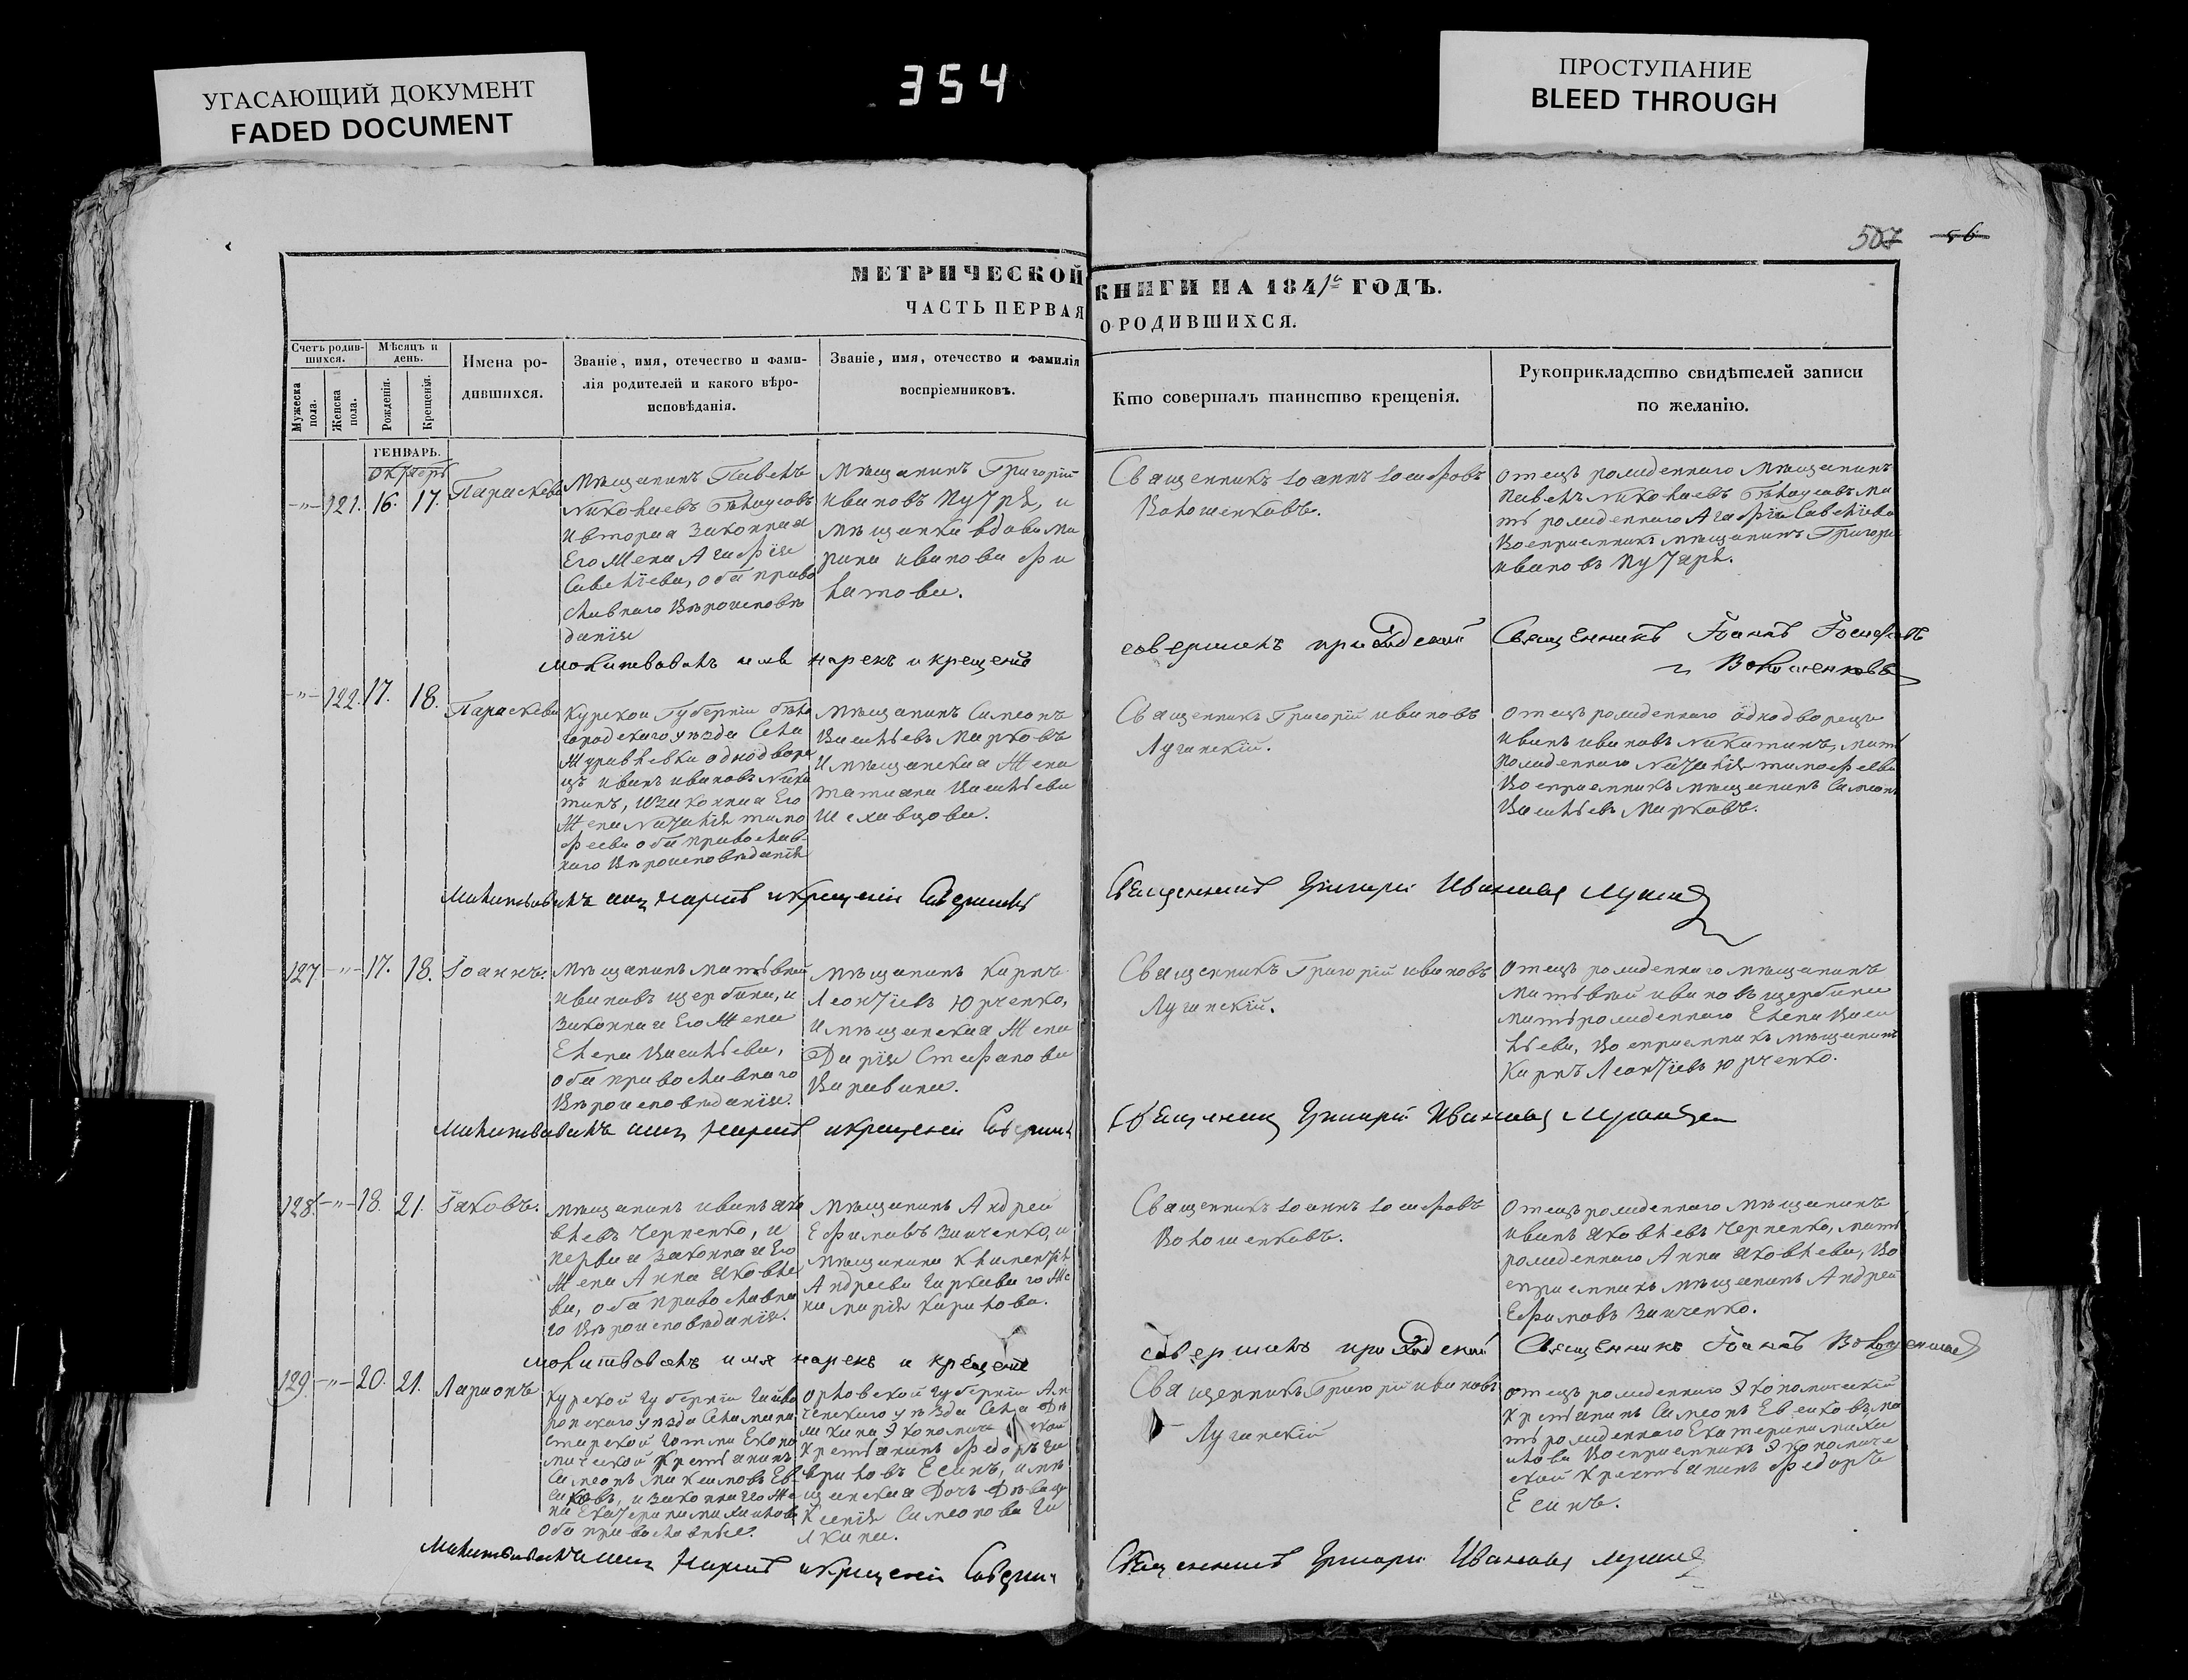 УГАСАЮЩИЙ ДОКУМЕНТ
FADED DOCUMENT
354
ПРОСТУПАНИЕ
BLEED THROUGH
507 56
МЕТРИЧЕСКОЙ КНИГИ НА 1841 ГОДЪ.
ЧАСТЬ ПЕРВАЯ О РОДИВШИХСЯ.
Счетъ родив-
шихся.
Мужеска пола.
Женска пола.
Мѣсяцъ и
день.
Рожденія.
Крещенія.
Имена ро-
дившихся.
Званіе, имя, отечество и фами-
лія родителей и какого вѣро-
исповѣданія.
Званіе, имя, отечество и фамилія
воспріемниковъ.
Кто совершалъ таинство крещенія.
Рукоприкладство свидѣтелей записи
по желанію.
ГЕНВАРЬ.
Октябрь
121. 16. 17. Параскева
Мѣщанинъ Павелъ
Николаевъ
и вторая законная
Его Жена Агафія
Савелїева, оба право
славнаго Вѣроисповѣ
данїя
Мѣщанинъ Григорій
ивановъ и
мѣщанка вдова Ма
рина иванова Фи
латова.
Священникъ Іоаннъ Іосифовъ
Волошенковъ.
отецъ рожденнаго Мѣщанинъ
Павелъ Николаевъ ма
ть рожденнаго Агафїя Савелїева
Воспрїемникъ мѣщанинъ Григори
ивановъ
молитвовалъ имя нарекъ и крещенїе
совершилъ приходскій Священникъ Іоаннъ Іосифовъ
Волошенковъ
122. 17. 18. Параскева
Курской Губернїи бѣло
городскаго уѣзда Села
Журавлевки однодворе
цъ иванъ ивановъ Ники
тинъ, и законная Его
Жена Наталїя тимо
феева оба православ
наго Вѣроисповѣданїя
Мѣщанинъ Симеонъ
Васильевъ Марковъ
и мѣщанская Жена
татиана Васильева
Шеховцова.
Священникъ Григорїй ивановъ
Луганскїй.
отецъ рожденнаго однодворецъ
иванъ ивановъ Никитинъ, мать
рожденнаго Наталїя тимофеева
Воспрїемникъ мѣщанинъ Симеонъ
Васильевъ Марковъ.
Молитвовалъ имя нарекъ и крещенїе совершилъ
Священникъ Григорїй Ивановъ
127 17. 18. Іоаннъ.
Мѣщанинъ матвѣй
ивановъ щербина, и
Законная Его Жена
Елена Васильева,
оба православнаго
Вѣроисповѣданїя.
мѣщанинъ Карпъ
Леонтїевъ Юрченко,
и мѣщанская Жена
Дарїя Стефанова
Варавина.
Священникъ Григорїй ивановъ
Луганскїй.
отецъ рожденнаго мѣщанинъ
матвѣй ивановъ щербина
мать рожденнаго Елена Васи
льева, Воспрїемникъ мѣщанинъ
Карпъ Леонтїевъ Юрченко.
Молитвовалъ имя нарекъ и крещенїе совершилъ
Священникъ Григорїй Ивановъ
128. 18. 21. Іаковъ.
мѣщанинъ иванъ яко
влевъ Черненко, и
первая законная Его
Жена Анна Яковле
ва, оба православна
го Вѣроисповѣданїя.
мѣщанинъ Андрей
Ефимовъ Зинченко, и
мѣщанина
Андреева Же
на марїя Карпова.
Священникъ Іоаннъ Іосифовъ
Волошенковъ.
отецъ рожденнаго мѣщанинъ
иванъ яковлевъ Черненко, мать
рожденнаго Анна яковлева, Во
спрїемникъ мѣщанинъ Андрей
Ефимовъ Зинченко.
молитвовалъ имя нарекъ и крещенїе
совершилъ приходскій Священникъ Іоаннъ
129. 20. 21. Ларионъ
Курской губернїи
уѣзда Села
Эконо
мической Крестьянинъ
Симеонъ
и законная его Же
на Екатерина
оба православные.
Орловской губернїи
уѣзда Села
Экономической
Крестьянинъ Федоръ
Есинъ, и мѣ
щанская Дочь Дѣвица
Ксенїя Симеонова
Священникъ Григорїй ивановъ
Луганскїй
отецъ рожденнаго Экономическїй
Крестьянинъ Симеонъ ма
ть рожденнаго Екатерина
Воспрїемникъ Экономиче
скїй Крестьянинъ Федоръ
Есинъ.
Молитвовалъ имя нарекъ и крещенїе совершилъ
Священникъ Григорїй Ивановъ